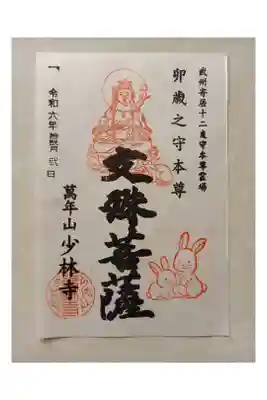 武州寄居十二支守本尊霊場
卯歳之守本尊
文殊菩薩
萬年山少林寺
令和六年 月弐日